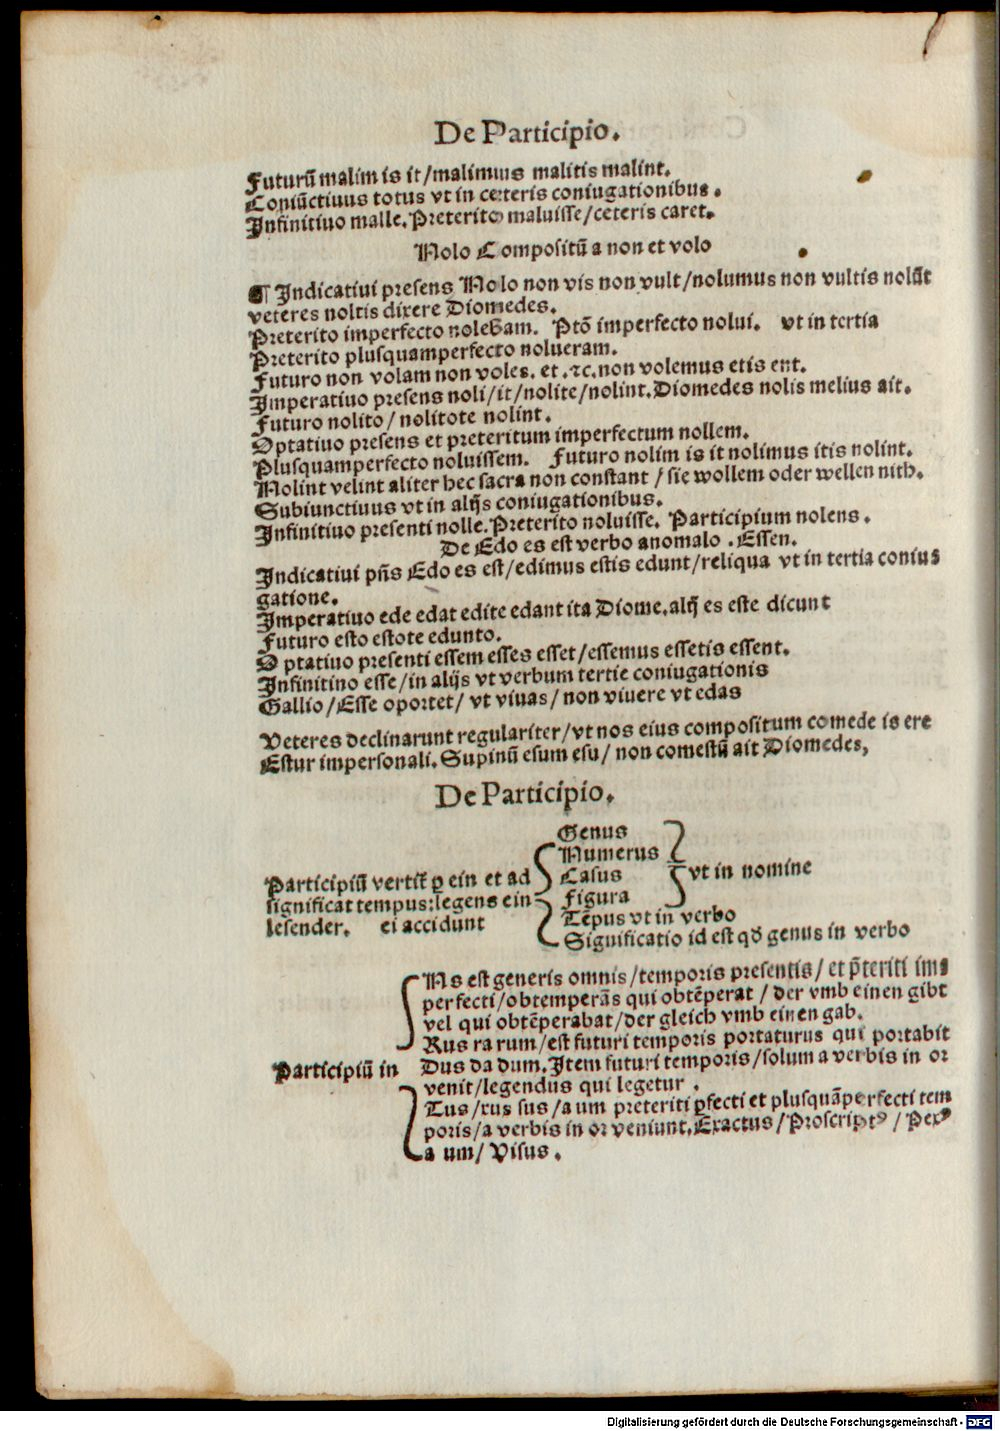 De Participio.
Futurū malim is it/malimus malitis malint.
Coniūctiuus totus vt in ceteris coniugationibus.
Infinitiuo malle. Preterito maluisse/ceteris caret.
Nolo Compositū a non et volo
¶ Indicatiui presens Nolo non vis non vult/nolumus non vultis nolūt
veteres noltis dixere Diomedes.
Preterito imperfecto nolebam. Ptō imperfecto nolui. vt in tertia
Preterito plusquamperfecto nolueram.
Futuro non volam non voles. et .⁊c. non volemus etis ent.
Imperatiuo presens noli/it/nolite/nolint. Diomedes nolis melius ait.
Futuro nolito/ nolitote nolint.
Optatiuo presens et preteritum imperfectum nollem.
Plusquamperfecto noluissem. Futuro nolim is it nolimus itis nolint.
Nolint velint aliter hec sacra non constant / sie wollem oder wellen nith.
Subiunctiuus vt in alijs coniugationibus.
Infinitiuo presenti nolle. Preterito noluisse. Participium nolens.
De Edo es est verbo anomalo. Essen.
Indicatiui pn̄s Edo es est/edimus estis edunt/reliqua vt in tertia conius
gatione.
Imperatiuo ede edat edite edant ita Diome. alij es este dicunt
Futuro esto estote edunto.
Optatiuo presenti essem esses esset/essemus essetis essent.
Infinitino esse/in alijs vt verbum tertie coniugationis
Gallio/Esse oportet/ vt viuas/ non viuere vt edas
Veteres declinarunt regulariter/vt nos eius compositum comede is ere
Estur impersonali. Supinū esum esu/ non comestū ait Diomedes,
De Participio.
Participiū vertit̄ ꝑ ein et ad
significat tempus: legens ein
lesender. ei accidunt
Genus
Numerus
Casus
Figura
vt in nomine
Tēpus vt in verbo
Significatio id est qđ genus in verbo
Participiū in
Ns est generis omnis/temporis presentis/ et p̄teriti ims
perfecti/obtemperās qui obtēperat / der vmb einen gibt
vel qui obtēperabat/der gleich vmb einen gab.
Rus ra rum/est futuri temporis portaturus qui portabit
Dus da dum. Item futuri temporis/solum a verbis in or
venit/legendus qui legetur.
Tus/xus sus/a um preteriti ꝑfecti et plusquāperfecti tem
poris/a verbis in or veniunt. Exactus/Proscriptꝰ/Pexꝰ
a um/ Visus.
Digitalisierung gefördert durch die Deutsche Forschungsgemeinschaft - DFG